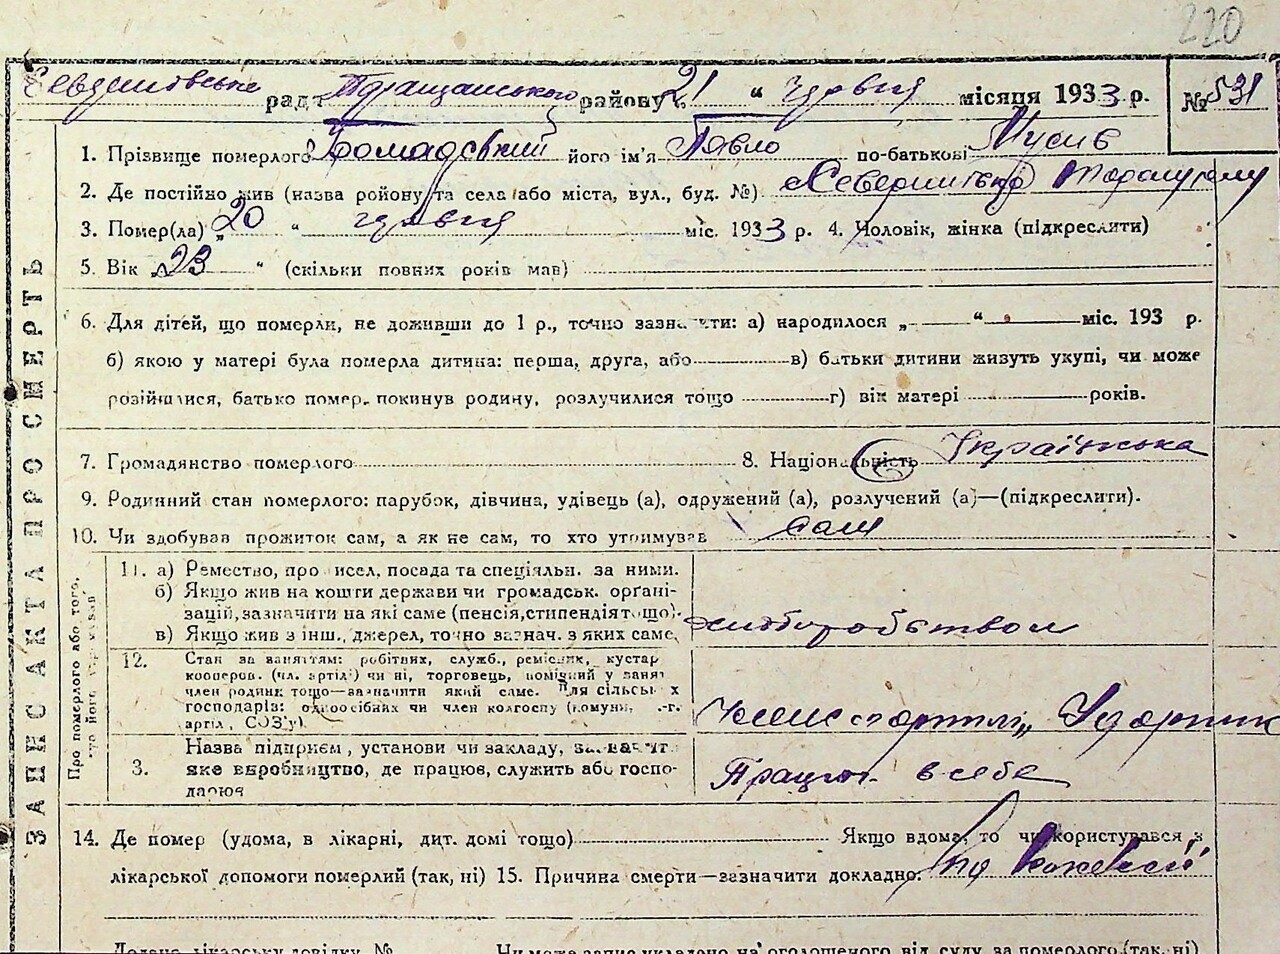 220
ради Таращанського району 21 " червня місяця 1933 р. № 531
1. Прізвище померлого Громадський його ім'я Павло по-батькові Мусів
2. Де постійно жив (назва ройону та села або міста, вул., буд. №)
3. Помер(ла) „20 " червня міс. 1933 р. 4. Чоловік, жінка (підкреслити)
5. Вік 23 " (скільки повних років мав)
6. Для дітей, що померли, не доживши до 1 р., точно зазначити: а) народилося „ " міс. 193 р.
б) якою у матері була померла дитина: перша, друга, або в) батьки дитини живуть укупі, чи може
розійшлися, батько помер, покинув родину, розлучилися тощо г) вік матері років.
7. Громадянство померлого 8. Національність Українська
9. Родинний стан померлого: парубок, дівчина, удівець (а), одружений (а), розлучений (а)—(підкреслити).
10. Чи здобував прожиток сам, а як не сам, то хто утримував сам
ЗАПИС АКТА ПРО СМЕРТЬ
Про померлого або того, хто його утримував
11. а) Ремество, промисел, посада та спеціяльн. за ними.
б) Якщо жив на кошти держави чи громадськ. орґані-
зацій, зазначити на які саме (пенсія, стипендія тощо).
в) Якщо жив з інш., джерел, точно зазнач. з яких саме,
хліборобством
12. Стан за заняттям: робітник, служб., ремісник, кустар
кооперов. (чл. артілі) чи ні, торговець, помічний у занят
член родини тощо—зазначити який саме. Для сільських
господарів: одноосібних чи член колгоспу (комуни, с.-г.
артіл, СОЗ'у)
член с г артілі „Ударник
3. Назва підприєм, установи чи закладу, зазначит
яке виробництво, де працює, служить або госпо-
дарює
Працює в себе
14. Де помер (удома, в лікарні, дит. домі тощо) Якщо вдома, то чи користувався з
лікарської допомоги померлий (так, ні) 15. Причина смерти—зазначити докладно:
Додано лікарську довідку № Чи може запис укладено на оголошеного від суду за померлого (так, ні)